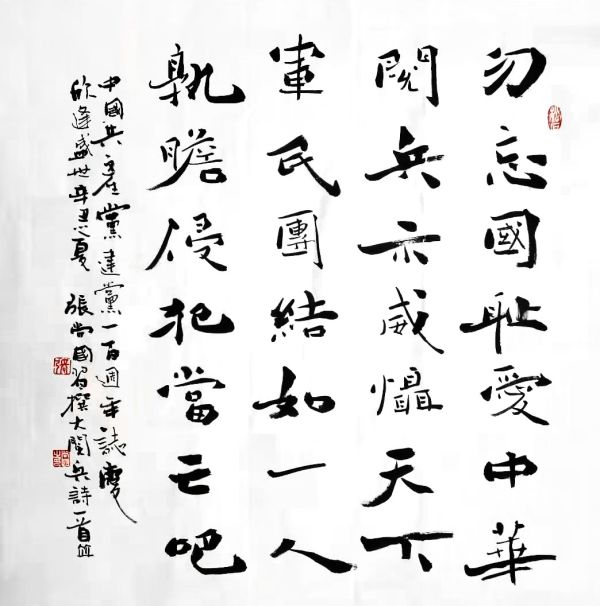 勿忘國耻愛中華
閱兵示威懾天下
軍民團結如一人
孰膽侵犯當亡吧
中國共產黨建黨一百週年誌慶
欣逢盛世辛丑夏 張尚國習撰大閱兵詩一首並